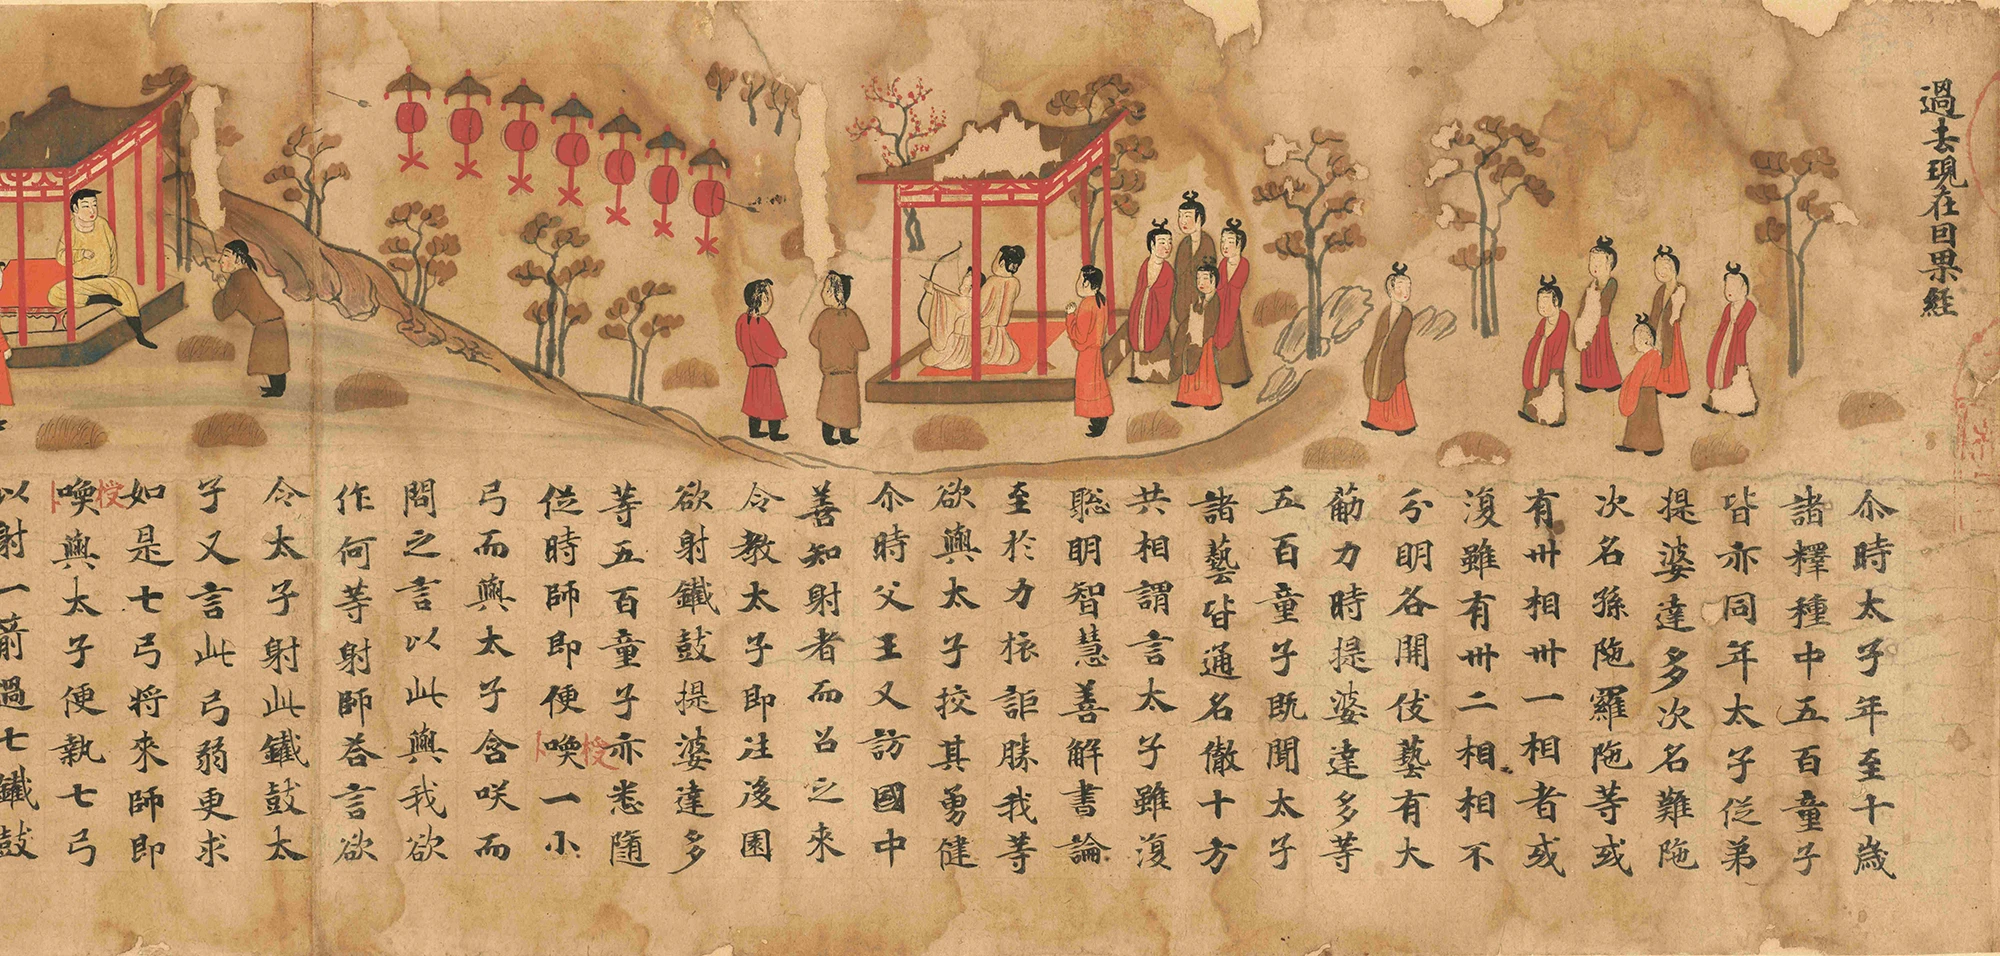 過去現在因果経
尒時太子年至十歲
諸釋種中五百童子
皆亦同年太子従弟
提婆達多次名難陁
次名孫陁羅陁等或
有卅相卅一相者或
復雖有卅二相相不
分明各閑伎藝有大
筋力時提婆達多等
五百童子旣聞太子
諸藝皆通名徹十方
共相謂言太子雖復
聡明智慧善解書論
至於力㧞詎勝我等
欲與太子挍其勇健
尒時父王又訪國中
善知射者而召之来
令教太子即往後園
欲射鐵鼓提婆達多
等五百童子亦悉隨
従時師即便喚一小
授
弓而與太子含咲而
問之言以此與我欲
作何等射師荅言欲
令太子射此鐵鼓太
子又言此弓弱更求
如是七弓将來師即
授
喚與太子便執七弓
以射一箭過七鐵鼓